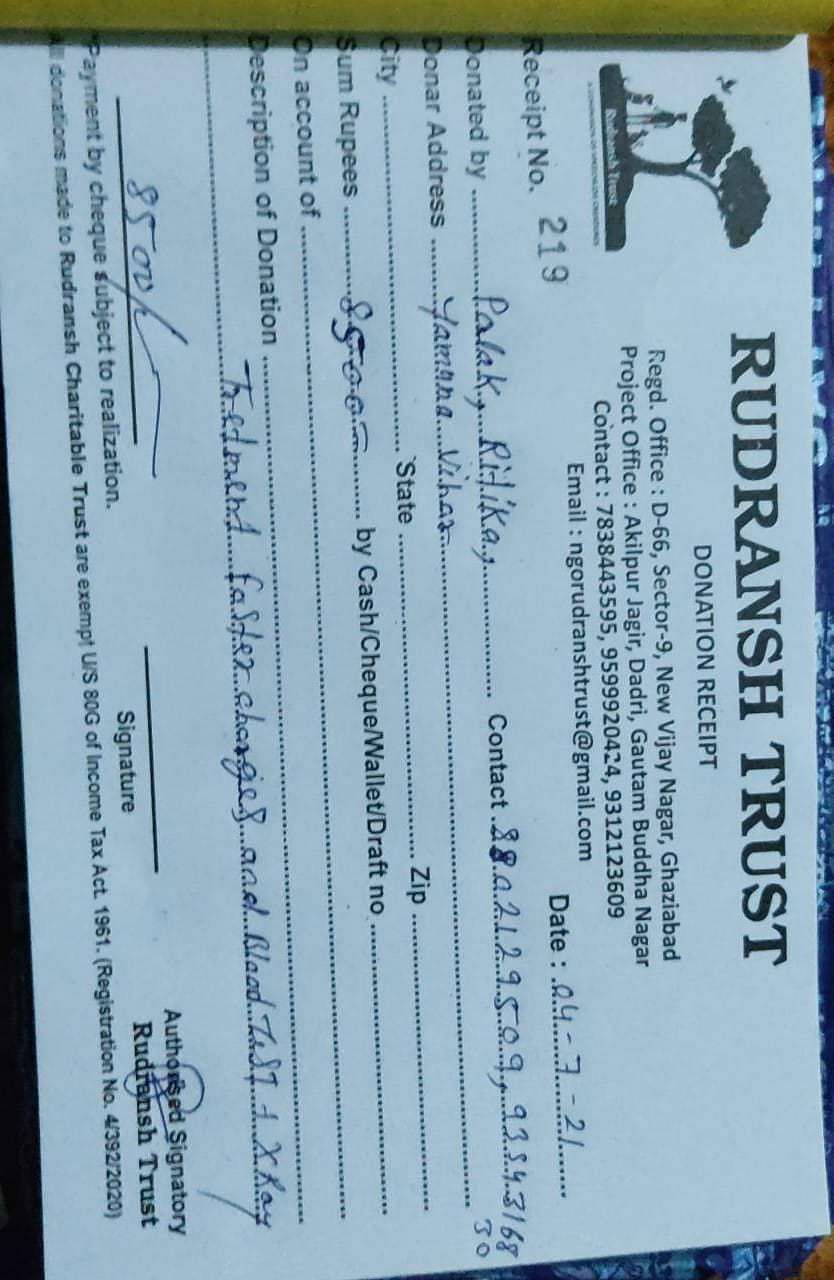 RUDRANSH TRUST
DONATION RECEIPT
Regd. Office : D-66, Sector-9, New Vijay Nagar, Ghaziabad
Project Office : Akilpur Jagir, Dadri, Gautam Buddha Nagar
Contact : 7838443595, 9599920424, 9312123609
Email : ngorudranshtrust@gmail.com
Receipt No. 219 Date : 04-7-21
Donated by Palak, Ritika, Contact 8802129509, 9354316830
Donar Address Yamuna Vihar
City State Zip
Sum Rupees 8500/- by Cash/Cheque/Wallet/Draft no
On account of
Description of Donation
Tretment faster charges and Blood Test + X Ray
8500/-
Signature
Authorised Signatory
Rudransh Trust
*Payment by cheque subject to realization.
All donations made to Rudransh Charitable Trust are exempt U/S 80G of Income Tax Act. 1961. (Registration No. 4/392/2020)